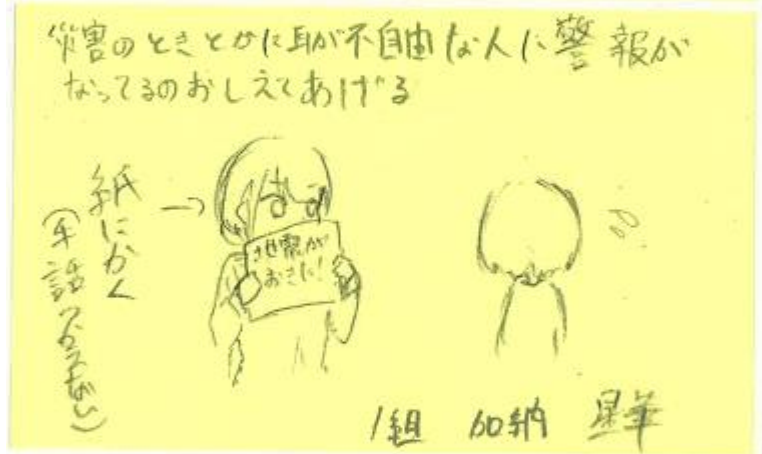 災害のときとかに耳が不自由な人に警報が
なってるのおしえてあげる
紙にかく
(手話つかえない)
地震が
おきた!
1組 加納 星華